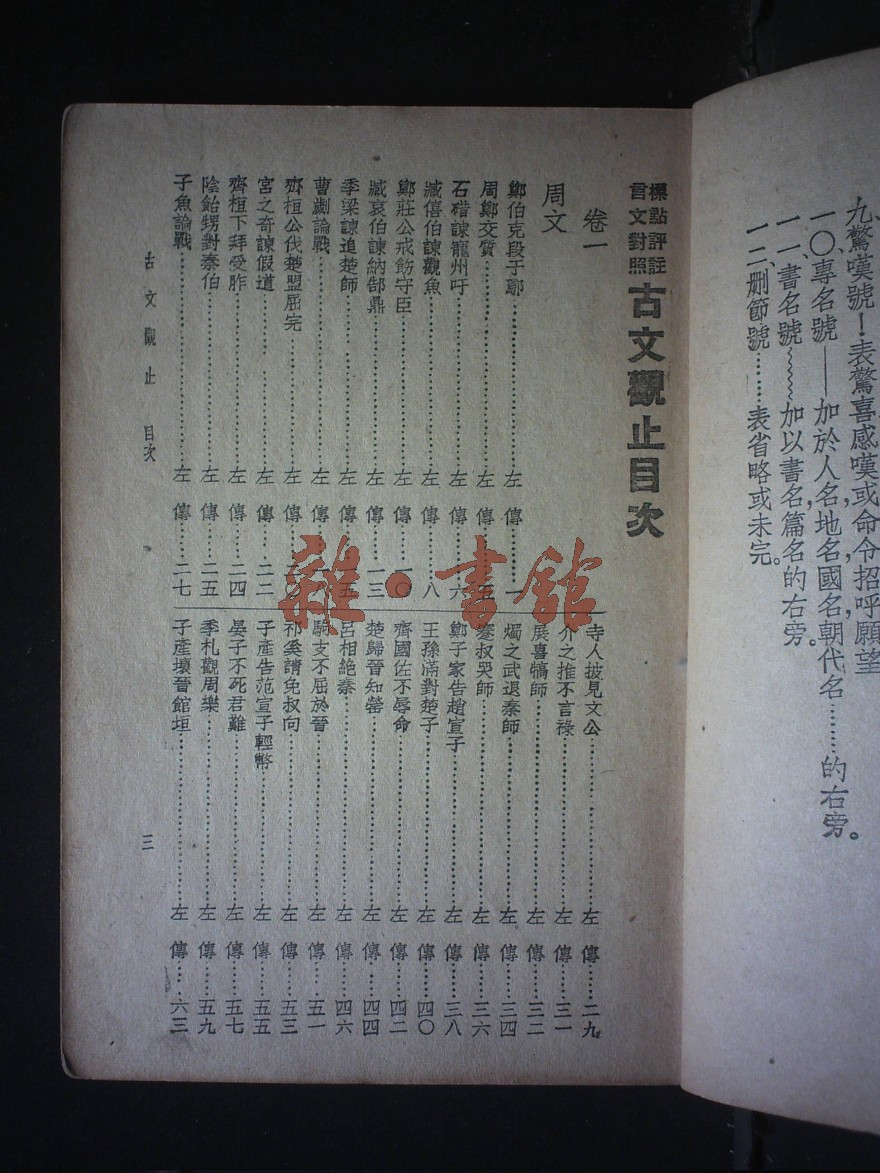 九、驚嘆號！表驚喜感嘆或命令招呼願望
一〇、專名號——加於人名地名國名朝代名………的右旁。
一一、書名號﹏﹏加以書名，篇名的右旁。
一二、刪節號……表省略或未完。
標點評註
言文對照
古文觀止目次
卷一
周文
鄭伯克段于鄢……左傳……一
周鄭交質……左傳……五
石碏諫寵州吁……左傳……六
臧僖伯諫觀魚……左傳……八
鄭莊公戒飭守臣……左傳……一〇
臧哀伯諫納郜鼎……左傳……一三
季梁諫追楚師……左傳……五
曹劌論戰……左傳……
齊桓公伐楚盟屈完……左傳……二〇
宮之奇諫假道……左傳……二二
齊桓下拜受胙……左傳……二四
陰飴甥對秦伯……左傳……二五
子魚論戰……左傳……二七
寺人披見文公……左傳……二九
介之推不言祿……左傳……三一
展喜犒師……左傳……三二
燭之武退秦師……左傳……三四
蹇叔哭師……左傳……三六
鄭子家告趙宣子……左傳……三八
王孫滿對楚子……左傳……四〇
齊國佐不辱命……左傳……四二
楚歸晉知罃……左傳……四四
呂相絕秦……左傳……四六
駒支不屈於晉……左傳……五一
祁奚請免叔向……左傳……五三
子產告范宣子輕幣……左傳……五五
晏子不死君難……左傳……五七
季札觀周樂……左傳……五九
子產壞晉館垣……左傳……六三
古文觀止 目次
三
雜·書館